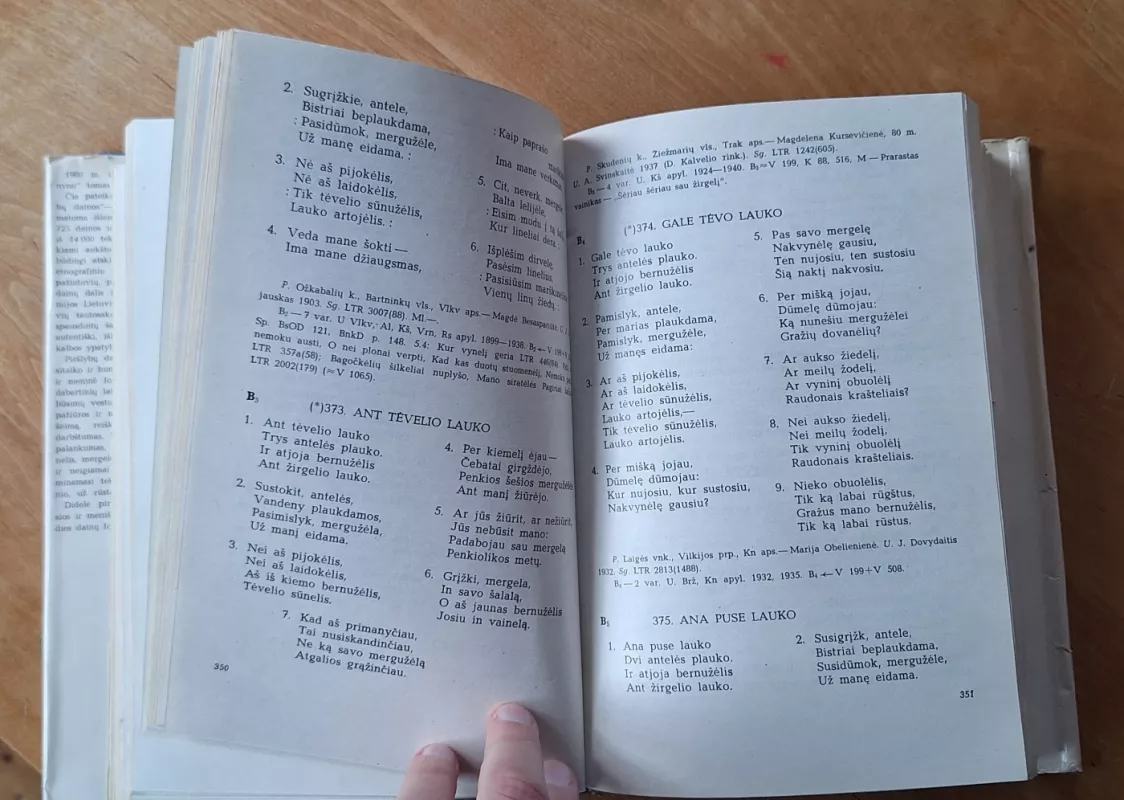 2. Sugrįžkie, antele,
Bistriai beplaukdama,
: Pasidūmok, mergužėle,
Už manę eidama. :
3. Nė aš pijokėlis,
Nė aš laidokėlis,
: Tik tėvelio sūnužėlis,
Lauko artojėlis. :
4. Veda mane šokti —
Ima mane džiaugsmas,
: Kaip paprašo
Ima mane verksmas.
5. Cit, neverk, mergele
Balta lelijėle,
: Eisim mudu į tą šalį
Kur lineliai dera. :
6. Išplėšim dirvelę,
Pasėsim linelius,
: Pasisiūsim marškinelius
Vienų linų žiedų. :
P. Ožkabalių k., Bartninkų vls., Vlkv aps.— Magdė
jauskas 1903. Sg. LTR 3007(88). Ml.—
B₂ — 7 var. U Vlkv, Al, Kš, Vrn, Rs apyl. 1899—1938. B₂ ← V 199
Sp. BsOD 121, BnkD p. 148. 5.4: Kur vynelį geria LTR
nemoku austi, O nei plonai verpti, Kad kas duotų stuomenėlį, Nemoku
LTR 357a(58); Bagočkėlių šilkeliai nuplyšo, Mano siratėlės
LTR 2002(179) (≈V 1065).
B₃ (*)373. ANT TĖVELIO LAUKO
1. Ant tėvelio lauko
Trys antelės plauko.
Ir atjoja bernužėlis
Ant žirgelio lauko.
2. Sustokit, antelės,
Vandeny plaukdamos,
Pasimislyk, mergužėla,
Už manį eidama.
3. Nei aš pijokėlis,
Nei aš laidokėlis,
Aš iš kiemo bernužėlis,
Tėvelio sūnelis.
4. Per kiemelį ėjau —
Čebatai girgždėjo,
Penkios šešios mergužėlės
Ant manį žiūrėjo.
5. Ar jūs žiūrit, ar nežiūrit,
Jūs nebūsit mano:
Padabojau sau mergelą
Penkiolikos metų.
6. Grįžki, mergela,
In savo šalalą,
O aš jaunas bernužėlis
Josiu in vainelą.
7. Kad aš primanyčiau,
Tai nusiskandinčiau,
Ne ką savo mergužėlą
Atgalios grąžinčiau.
350
P. Skudenių k., Žiežmarių vls., Trak aps.— Magdelena Kursevičienė, 80 m.
U. A. Svinskaitė 1937 (D. Kalvelio rink.). Sg. LTR 1242(605).
B₃ — 4 var. U. Kš apyl. 1924—1940. B₃≈V 199, K 88, 516, M — Prarastas
vainikas — „Šėriau šėriau sau žirgelį".
B₄ (*)374. GALE TĖVO LAUKO
1. Gale tėvo lauko
Trys antelės plauko.
Ir atjojo bernužėlis
Ant žirgelio lauko.
2. Pamislyk, antele,
Per marias plaukdama,
Pamislyk, mergužėle,
Už manęs eidama:
3. Ar aš pijokėlis,
Ar aš laidokėlis,
Ar tėvelio sūnužėlis,
Lauko artojėlis,—
Tik tėvelio sūnužėlis,
Lauko artojėlis.
4. Per mišką jojau,
Dūmelę dūmojau:
Kur nujosiu, kur sustosiu,
Nakvynėlę gausiu?
5. Pas savo mergelę
Nakvynėlę gausiu,
Ten nujosiu, ten sustosiu
Šią naktį nakvosiu.
6. Per mišką jojau,
Dūmelę dūmojau:
Ką nunešiu mergužėlei
Gražių dovanėlių?
7. Ar aukso žiedelį,
Ar meilų žodelį,
Ar vyninį obuolėlį
Raudonais krašteliais?
8. Nei aukso žiedelį,
Nei meilų žodelį,
Tik vyninį obuolėlį
Raudonais krašteliais.
9. Nieko obuolėlis,
Tik ką labai rūgštus,
Gražus mano bernužėlis,
Tik ką labai rūstus.
P. Laigės vnk., Vilkijos prp., Kn aps.— Marija Obelienienė. U. J. Dovydaitis
1932. Sg. LTR 2813(1488).
B₄ — 2 var. U. Brž, Kn apyl. 1932, 1935. B₄ ← V 199+V 508.
B₅ 375. ANA PUSE LAUKO
1. Ana puse lauko
Dvi antelės plauko.
Ir atjoja bernužėlis
Ant žirgelio lauko.
2. Susigrįžk, antele,
Bistriai beplaukdama,
Susidūmok, mergužėle,
Už manę eidama.
351